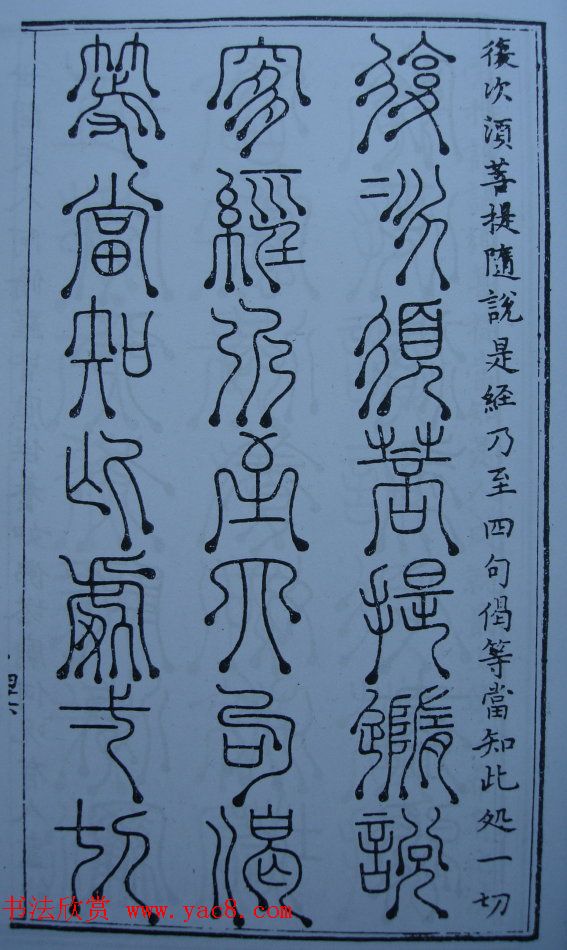 復次湏菩提隨說是経乃至四句偈等當知此処一切
復次須菩提隨說
是經乃至四句偈
等當知此處弌切
四六
书法欣赏 www.yac8.com